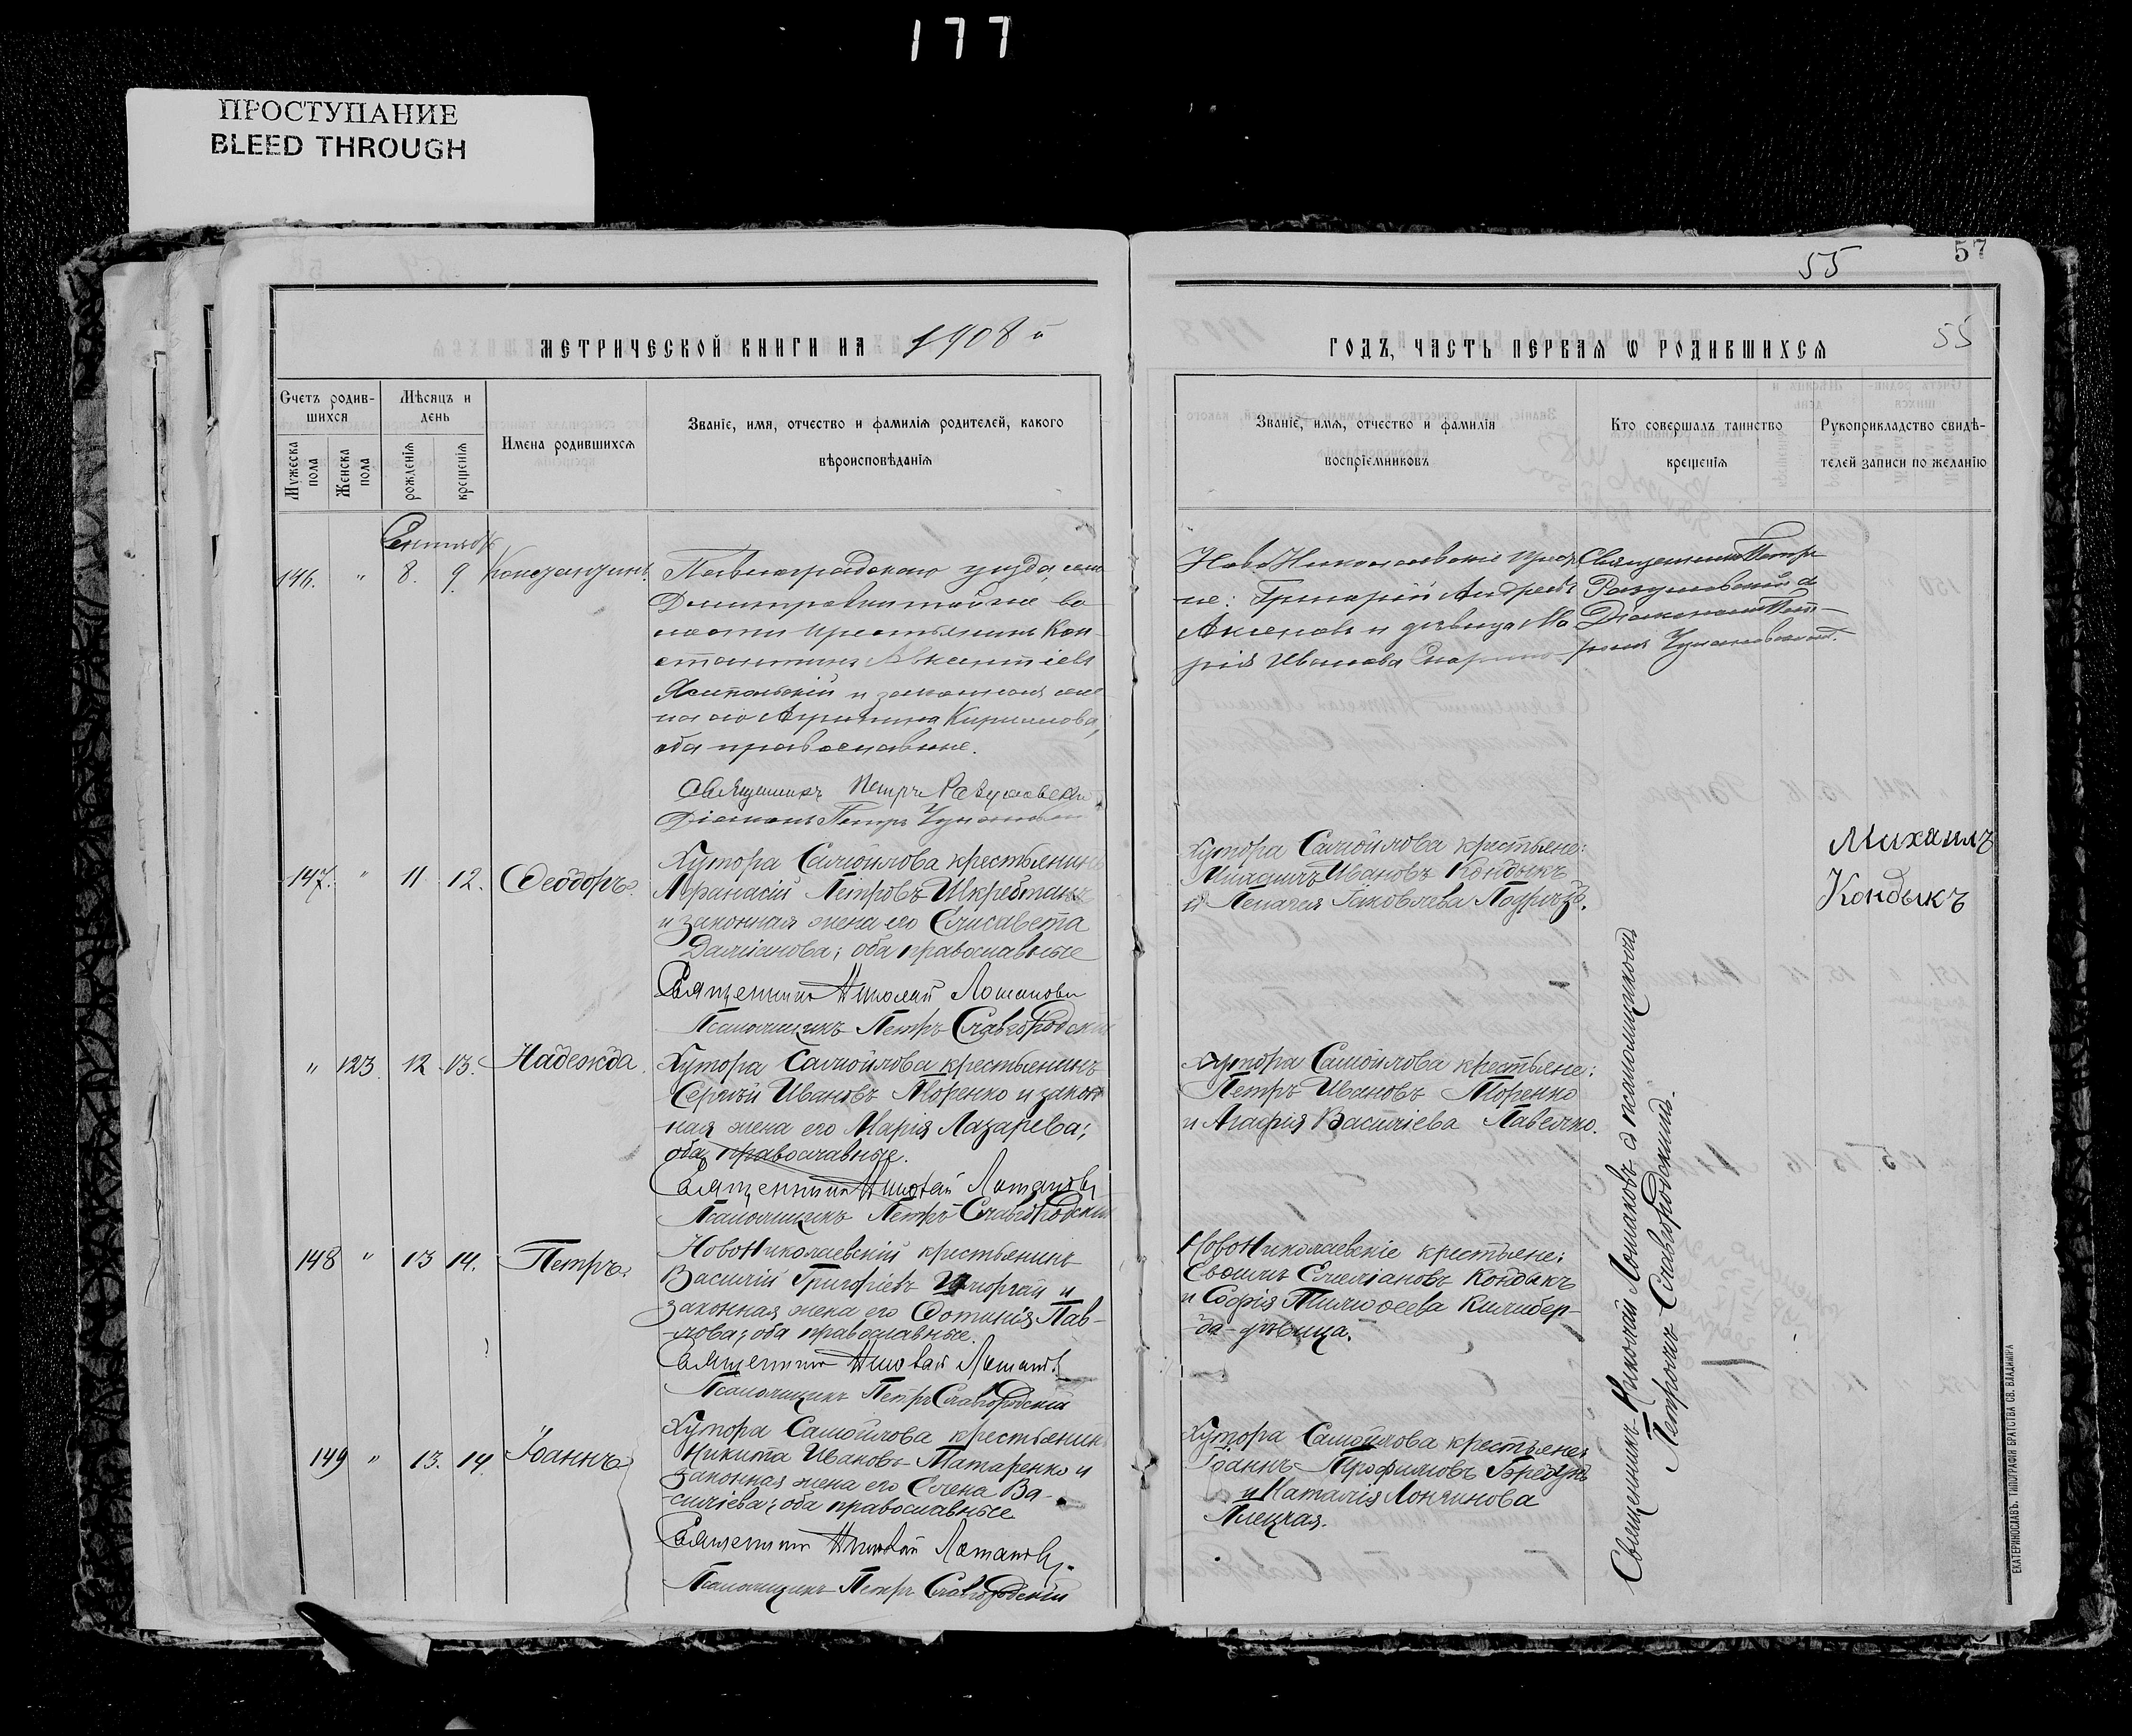 177
ПРОСТУПАНИЕ
BLEED THROUGH
55
57
55
МЕТРИЧЕСКОЙ КНИГИ НА 1908 й
ГОДЪ, ЧАСТЬ ПЕРВАЯ Ѡ РОДИВШИХСЯ
Счетъ родив-
шихся
Мѣсяцъ и
день
Мужеска пола
Женска пола
рожденія
крещенія
Имена родившихся
Званіе, имя, отчество и фамилія родителей, какого
вѣроисповѣданія
Званіе, имя, отчество и фамилія
воспріемниковъ
Кто совершалъ таинство
крещенія
Рукоприкладство свидѣ-
телей записи по желанію
Сентябрь
146. " 8. 9. Константинъ.
Павлоградскаго уѣзда,
волости крестьянинъ Кон-
стантинъ Авксентіевъ
и законная же-
на его Агрипина Кириллова,
оба православные.
Священникъ Петръ
Діаконъ Петръ
Ново Николаевскіе крестья-
не: Григорій Андреевъ
Аксеновъ и дѣвица Ма-
рія Иванова
Священникъ Петръ
съ
Діакономъ Пет-
ромъ
147. " 11 12. Ѳеодоръ.
Хутора Самойлова крестьянинъ
Аѳанасій Петровъ
и законная жена его Елисавета
Даміанова; оба православные
Священникъ Николай Лошаковъ
Псаломщикъ Петръ Славгородскій
Хутора Самойлова крестьяне:
Михаилъ Ивановъ Кондыкъ
и Пелагея Іаковлева
Михаилъ
Кондыкъ
" 123. 12 13. Надежда.
Хутора Самойлова крестьянинъ
Сергѣй Ивановъ Моренко и закон-
ная жена его Марія Лазарева;
оба православные.
Священникъ Николай Лошаковъ
Псаломщикъ Петръ Славгородскій
Хутора Самойлова крестьяне:
Петръ Ивановъ Моренко
и Агафія Василіева Павленко.
148 " 13 14. Петръ.
НовоНиколаевскій крестьянинъ
Василій Григоріевъ и
законная жена его Фотинія Пав-
лова; оба православные.
Священникъ Николай Лошаковъ
Псаломщикъ Петръ Славгородскій
НовоНиколаевскіе крестьяне:
Емеліановъ Кондыкъ
и Софія Тимоѳеева Килибер-
да-дѣвица.
149 " 13. 14. Іоаннъ
Хутора Самойлова крестьянинъ
Никита Ивановъ Татаренко и
законная жена его Елена Ва-
силіева; оба православные
Священникъ Николай Лошаковъ.
Псаломщикъ Петръ Славгородскій
Хутора Самойлова крестьяне:
Іоаннъ Трофимовъ
и Наталія Лонгинова
Священникъ Николай Лошаковъ съ псаломщикомъ
Петромъ Славгородскимъ.
ЕКАТЕРИНОСЛАВЪ. ТИПОГРАФІЯ БРАТСТВА СВ. ВЛАДИМІРА